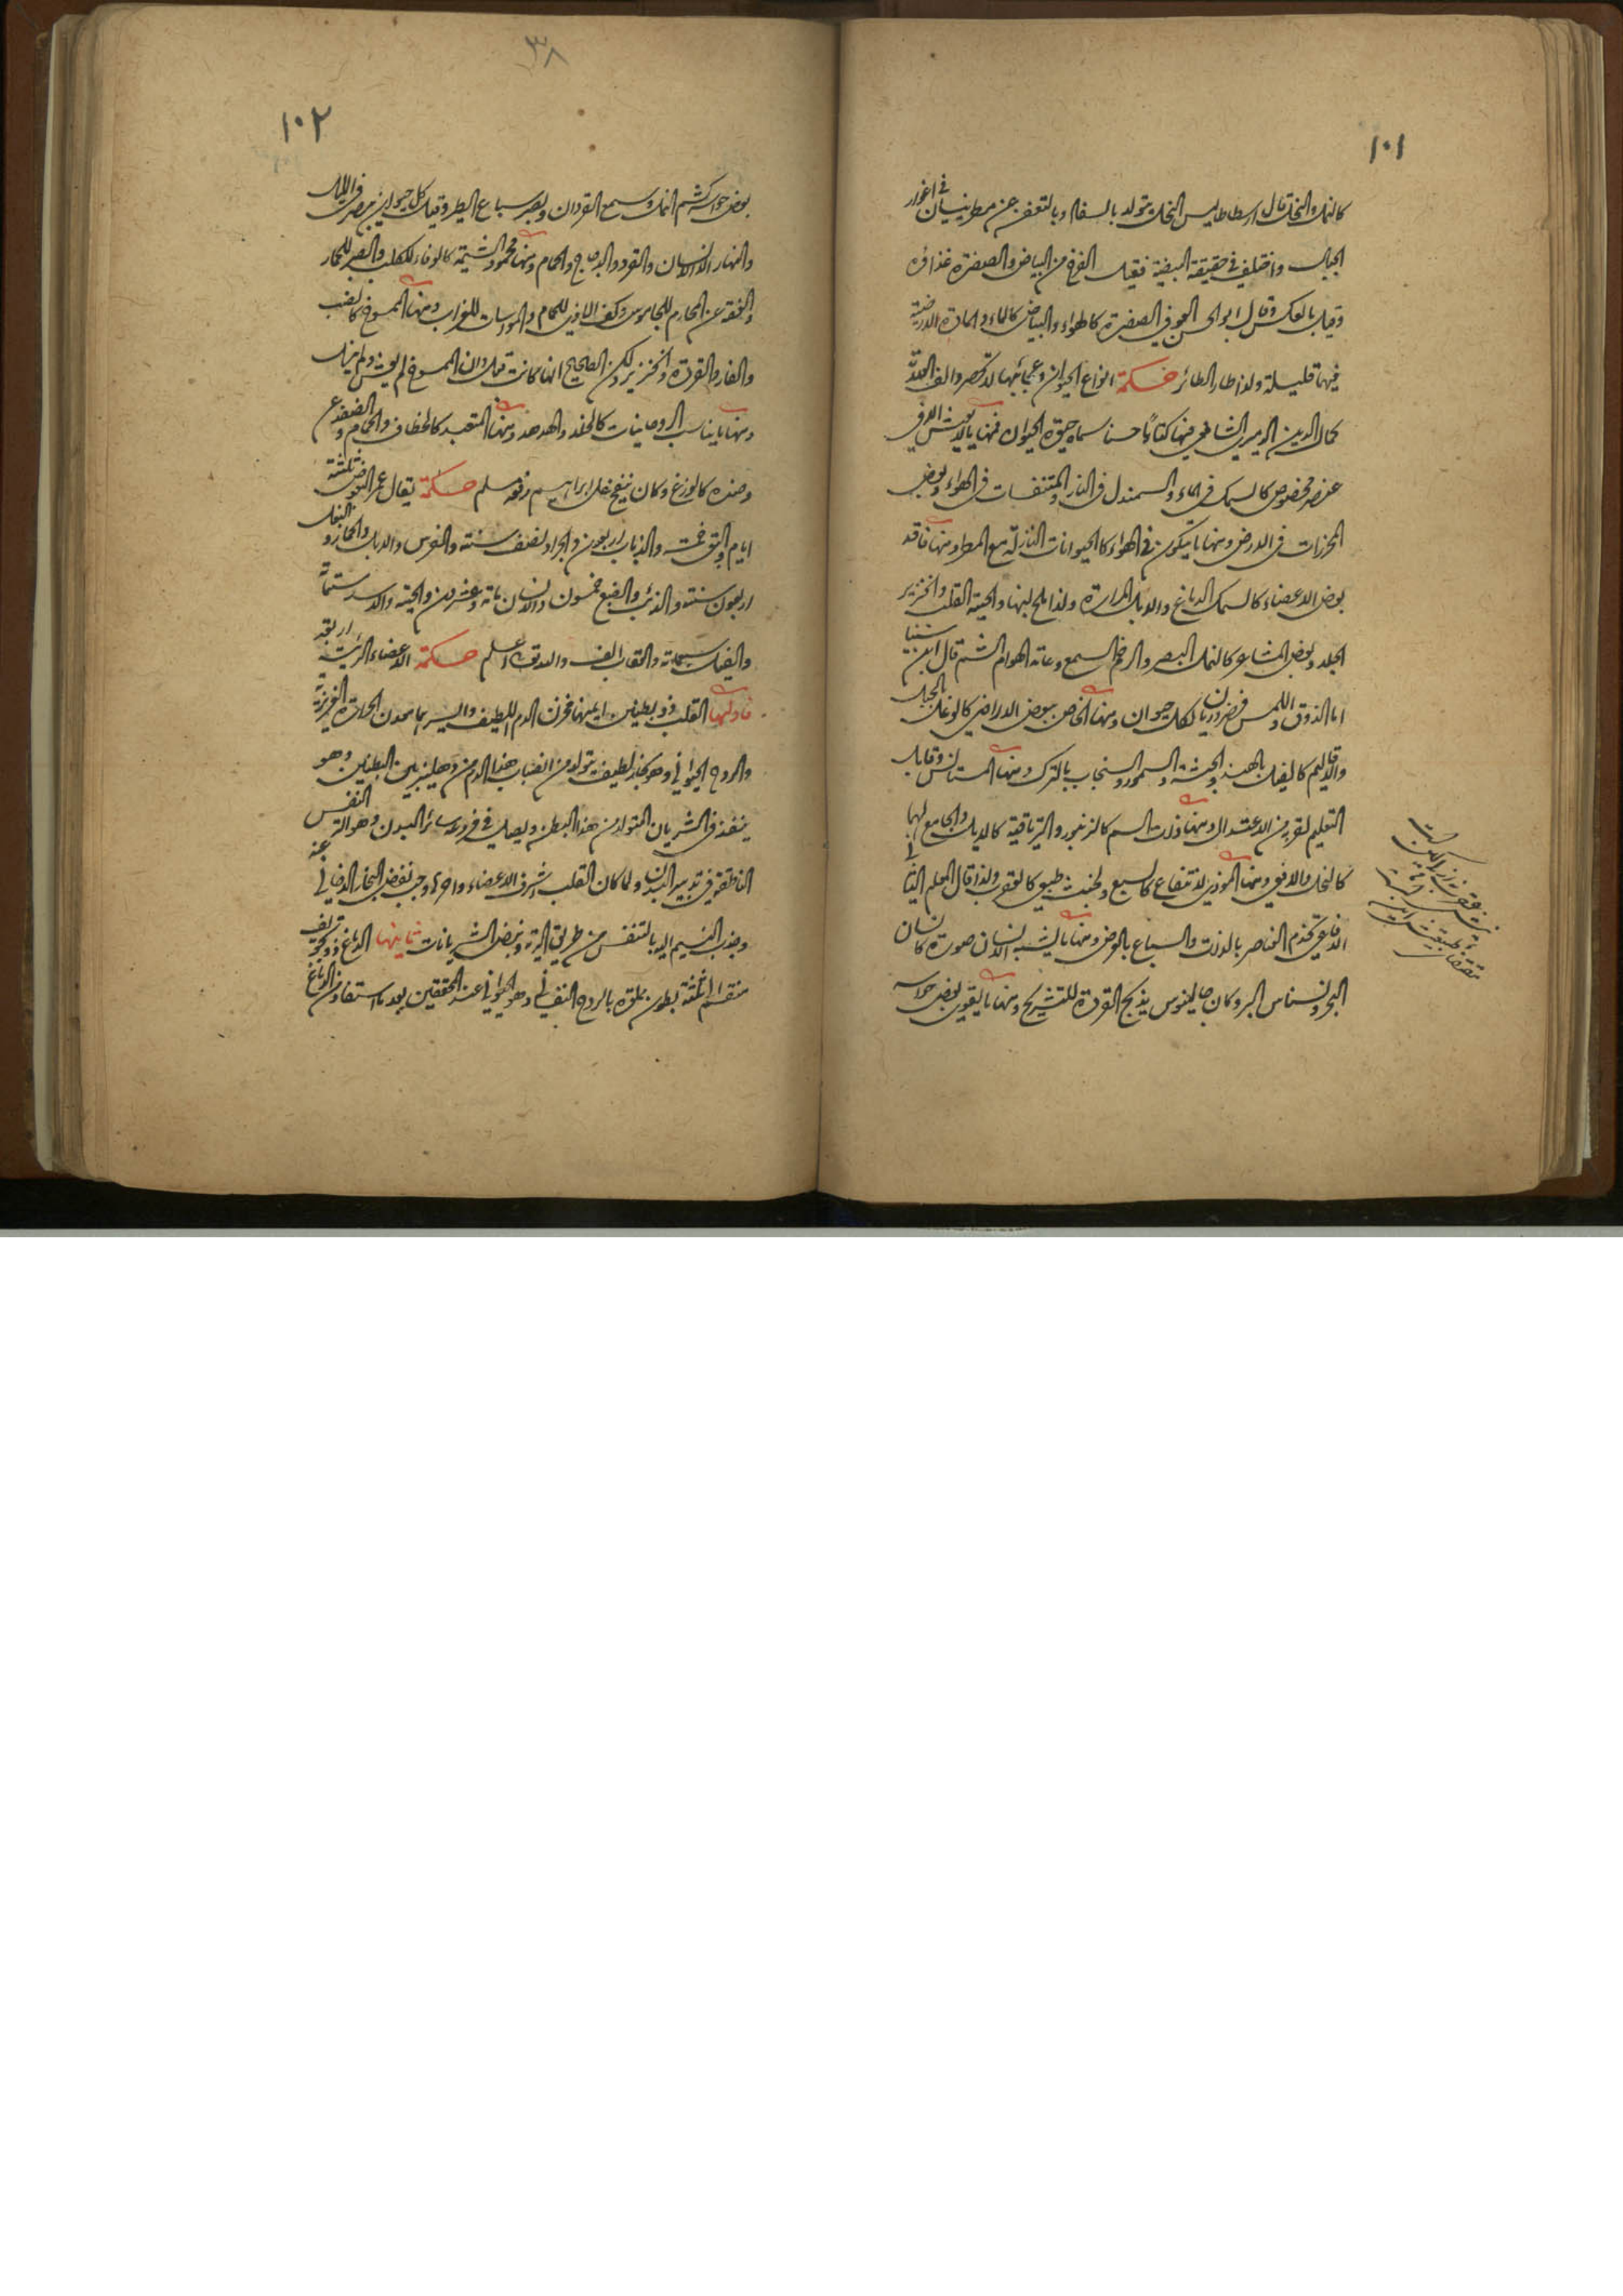 ١٠١
كالنمل والنحل قال ارسطاطاليس النحل يتولد بالسفاد وبالتعفن عن مطر نيسان في اغوار
الجبال واختلف في حقيقة البيضة فقيل الفرخ من البياض والصفرة غذاؤه
وقيل بالعكس وقال ابو الحسن الصفرة كالهواء والبياض كالماء والمادة الارضية
فيها قليلة ولذا طار الطائر حكمة انواع الحيوان وعجائبها لا تحصر والف العلامة
كمال الدين الدميري الشافعي فيها كتابا حسنا سماه حيوة الحيوان فمنها ما لا يعيش الا في
عنصر مخصوص كالسمك في الماء والسمندل في النار والمتنفسات في الهواء وبعض
الخرزات في الارض ومنها ما يتكون في الهواء كالحيوانات النازلة مع المطر ومنها فاقد
بعض الاعضاء كالسمك الدماغ والابل المرارة ولذا ملح لبنها والحية القلب والخنزير
الجلد وبعض المشاعر كالنمل البصر والرخم السمع وعامة الهوام الشم قال ابن سينا
اما الذوق واللمس فضروريان لكل حيوان ومنها الخاص ببعض الاراضي كالوعل بالجبل
والاقاليم كالفيل بالهند والحبشة والسمور والسنجاب بالترك ومنها المستانس وقابل
التعليم لقربه من الاعتدال ومنها ذوات السم كالزنبور والترياقية كالديك والجامع لهما
كالنحل والافعى ومنها الموذي لانتفاع كالسبع ولخبث طبع كالعقرب ولذا قال المعلم الثاني
الافاعي تخدم العناصر بالذات والسباع بالعرض ومنها ما يشبه الانسان صورة كانسان
البحر ونسناس البر وكان جالينوس يذبح القردة للتشريح ومنها ما يقوى بعض حواسه
١٠٢
٣٨
بعض حواسه كشم النمل وسمع القردان وبصر سباع الطير وقيل كل حيوان يبصر في الليل
والنهار الا الانسان والقرد والدجاج والحمام ومنها محمود الشيمة كالوفاء للكلب والصبر للحمار
والعفة عن المحارم للجاموس وكف الاذى للحمام والمواسات للغراب ومنها الممسوخ كالضب
والفار والقردة والخنزير ولكن الصحيح انها كانت قبل ولان الممسوخ لم يعش ولم ينسل
ومنها ما يناسب الروحانيات كالخلد والهدهد ومنها المتعبد كالخطاف والحمام والضفدع
وضده كالوزغ وكان ينفخ على ابراهيم حكمة يقال عمر البعوض ثلثة
ايام والبق خمسة والذباب اربعون والجراد نصف سنة والفرس والابل والحمار والبغل
اربعون سنة والذئب والضبع خمسون والانسان مائة وعشرون والحية والاسد ستمائة
والفيل سبعمائة والعقاب الف والله اعلم حكمة الاعضاء الرئيسة اربعة
فاولها القلب ذو بطينين ايمنهما مخزن الدم اللطيف وايسرهما معدن الحرارة الغريزية
والروح الحيواني وهو بخار لطيف يتولد من انصباب هذا الدم من دهليز بين البطينين وهو
ينفذ في الشريان المتولد من هذا البطن ويصل في فروعه سائر البدن وهو النفس
الناطقة في تدبير البدن ولما كان القلب اشرف الاعضاء واحرها وجب نفض البخار الدخاني عنه
وجذب النسيم اليه بالتنفس من طريق الرية ونبض الشريانات ثانيها الدماغ ذو تجويف
منقسم الى ثلثة بطون مملوة بالروح النفساني وهو الحيواني عند المحققين بعد ما استفاد من الدماغ